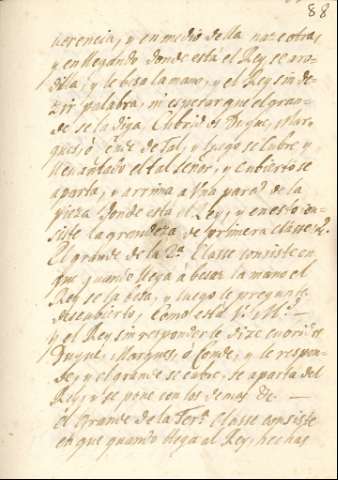 88
uerencia, y en medio della haze otra, y
en llegando donde está el Rey se aro-
dilla, y le besa la mano, y el Rey sin de-
zir palabra, ni esperar que el gran-
de se la diga, Cubrios Duque, Mar-
ques, ó Conde de Tal, y luego se Cubre, y
levantado el tal señor, y Cubierto se
aparta, y arrima a Una pared de la
pieza donde esta el Rey, y en esto con-
siste la grandeza de primera classe.
El grande de la 2ª Classe consiste en
que quando llega a besar la mano el
Rey se la besa, y luego le pregunta
descubierto, Como está V. M.d —
y el Rey sin responderle dize cubrios
Duque, Marques, ó Conde, y le respon-
de, y el grande se cubre, se aparta del
Rey, y se pone con los demas de —
el Grande de la Terª Classe consiste
en que quando llega al Rey, hechas